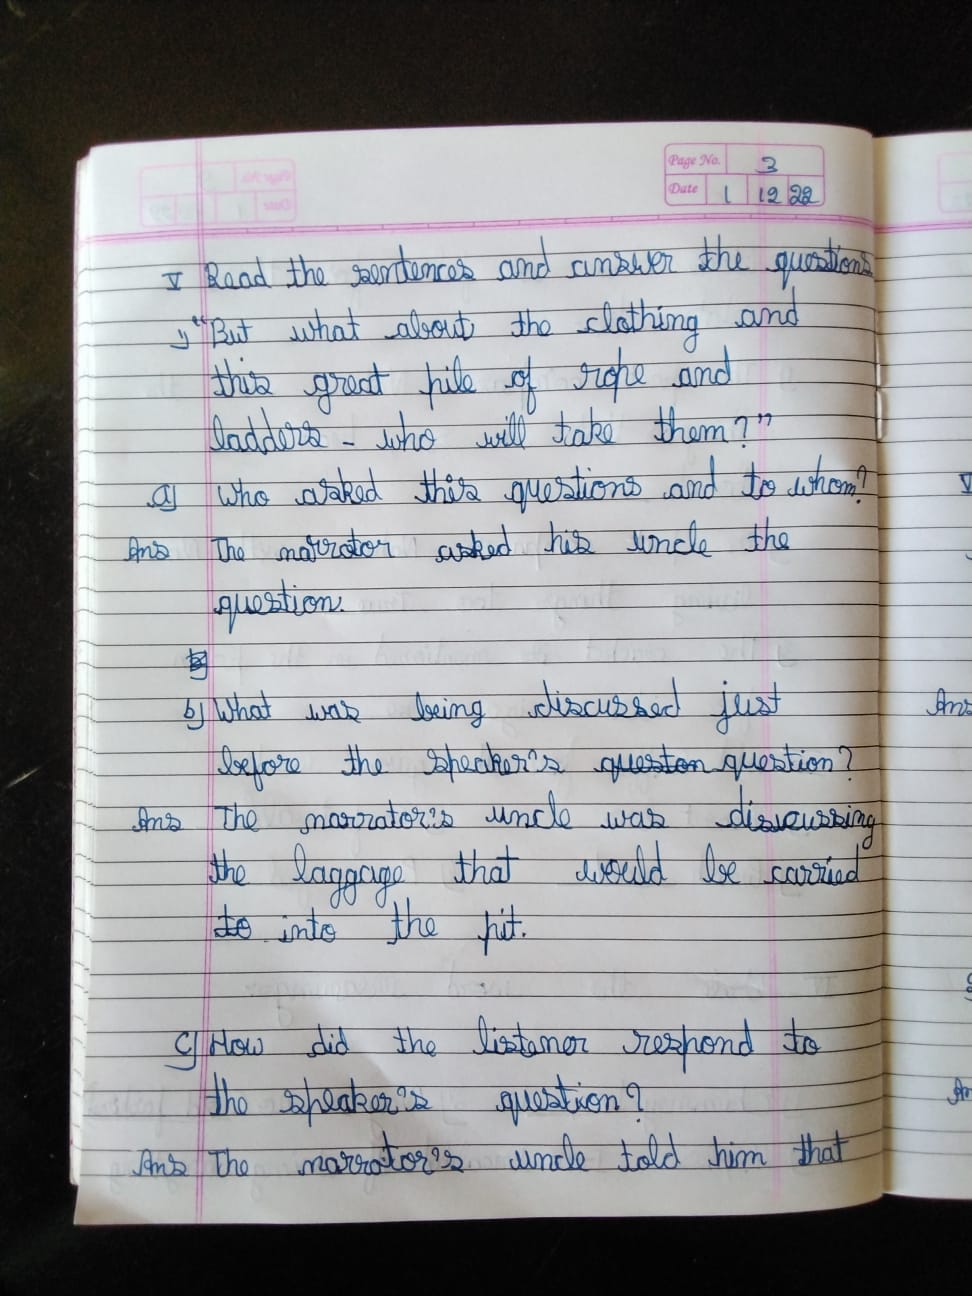 Page No. 3
Date 1 12 22
V Read the sentences and answer the questions
1) "But what about the clothing and
this great pile of rope and
ladders - who will take them?"
a) Who asked this questions and to whom?
Ans The narrator asked his uncle the
question.
b)
b) What was being discussed just
before the speaker's queston question?
Ans The narrator's uncle was discussing
the laggage that would be carried
to into the pit.
c) How did the listener respond to
the speaker's question?
Ans The narrator's uncle told him that
Ans